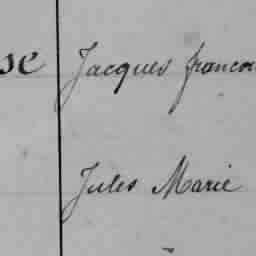 se Jacques franco
Jules Marie